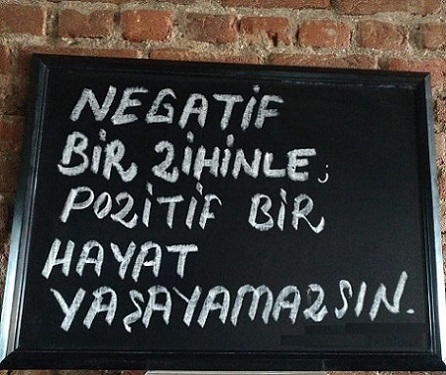 NEGATİF
BİR ZİHİNLE;
POZİTİF BİR
HAYAT
YAŞAYAMAZSIN.